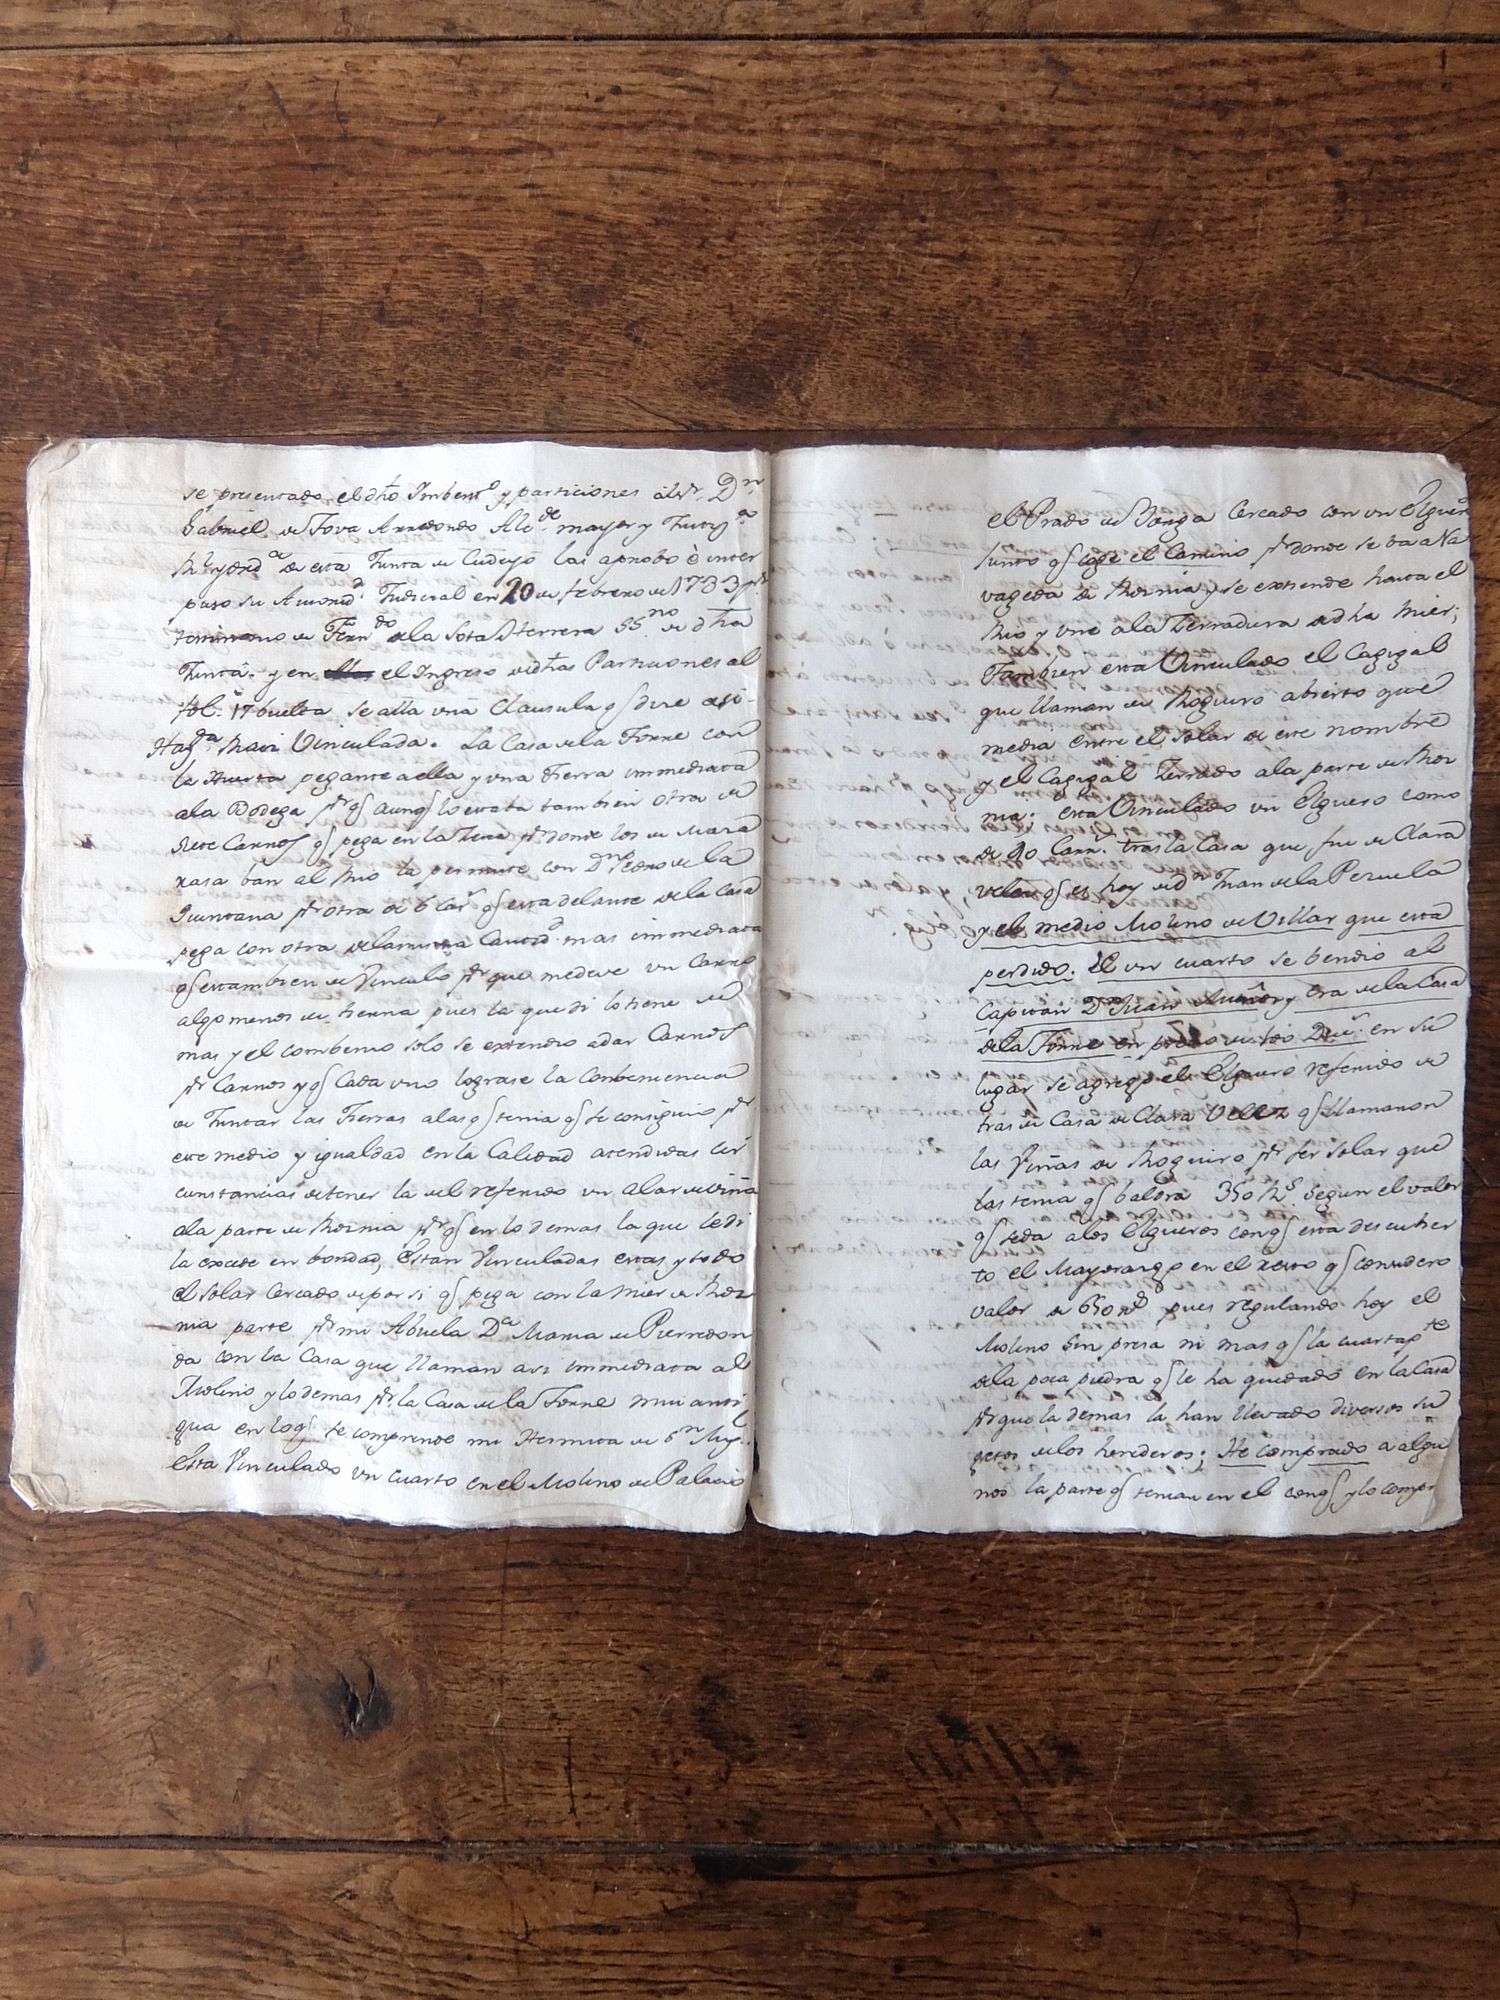 se presentado el dho Imbent.o y particiones al s.r D.n
Gabriel de Tova Arredondo Alc.de mayor y Justi.a
R.l y ord.a de esta Junta de Cudeyo las aprobo è inter
puso su Autorid.d Judicial en 20 de febrero de 1733 p.r
testimonio de Fern.do de la Sota Herrera SS.no de dha
Junta. y en el Ingreso de dhas Particiones al
fol. 17 buelta se alla una Clausula q dize asi.
Haz.da Raiz Vinculada. La Casa de la Torre con
la Huerta pegante a ella y una tierra immediata
a la Bodega p.r q aunq lo estaba tambien otra de
siete Carros q pega en la p.r donde los de Mara
rasa ban al Rio la permute con D.n Pedro de la
Quintana p.r otra de 6 Car.s q esta delante de la Casa
pega con otra de la misma Cantid.d mas immediata
q es tambien de Vinculo p.r que me deve un Carro
algo menos de tierra pues la que di lo tiene de
mas y el combenio solo se extendio a dar Carros
p.r Carros y q Cada uno lograse la Conbeniencia
de Juntar las Tierras a las q tenia q se consiguio p.r
este medio y igualdad en la Calidad atendidas cir
cunstancias de tener la del referido un alar de viña
a la parte de Hornia p.r q en lo demas la que le di
la excede en bondad, Estan Vinculadas estas y todo
el solar Cercado de por si q pega con la mier de Hor
nia parte p.r mi Abuela D.a Maria de Pierredon
da con la Casa que llaman asi immediata al
Molino y lo demas p.r la Casa de la Torre mui anti
gua en lo q se comprende mi Hermita de S.n Mig.l
Esta Vinculado un cuarto en el Molino de Palacio
el Prado de Bonga Cercado con un Elguero
Junto q coge el Camino p.r donde se ba a Na
vageda de Hornia y se extiende hasta el
Rio y une a la Zerradura de dha Mier;
Tambien esta Vinculado el Cagigal
que llaman de Rogueiro abierto que
media entre el solar de este nombre
y el Cagigal Zerrado a la parte de Hor
nia: esta Vinculado un Elguero como
de 20 Carr.s tras la Casa que fue de Clara
Velez q es hoy de d.n Juan de la Pezuela
y el medio Molino de Villar que esta
perdido. El un cuarto se bendio al
Capitan D.n Juan y era de la Casa
de la Torre en precio de Duc.s en su
lugar se agrego el Elguero referido de
tras de Casa de Clara Velez q llamaron
las Viñas de Rogueiro p.r ser solar que
las tenia q balora 350 R.s segun el valor
q se da a los Elgueros con q esta descubier
to el Mayorazgo en el resto q considero
valor de 650 r.s pues regulando hoy el
Molino sin presa ni mas q la cuarta p.te
de la poca piedra q le ha quedado en la Casa
p.r que la demas la han llevado diversos su
getos de los herederos; He comprado a algu
nos la parte q tenian en el con q y lo compr